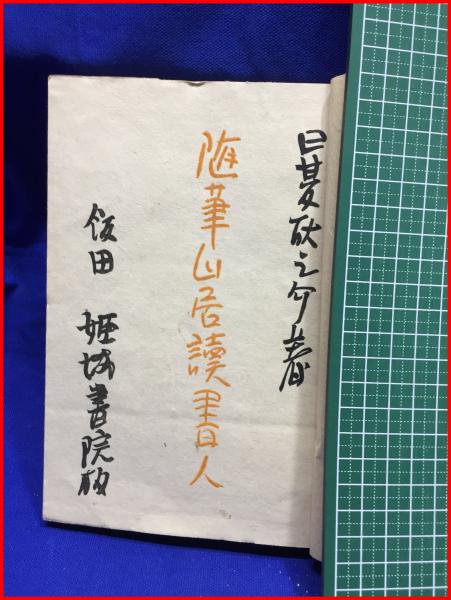 日夏耿之介著
随筆山居讀書人
飯田 姫城書院版